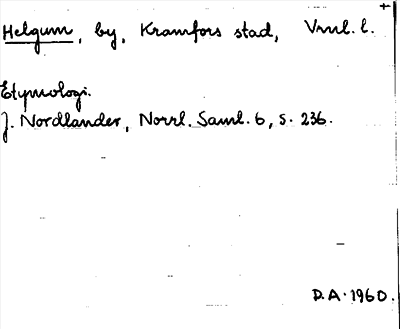 Helgum, by, Kramfors stad, Vrnl. l.
Etymologi.
J. Nordlander, Norrl. Saml. 6, s. 236.
D.A. 1960.